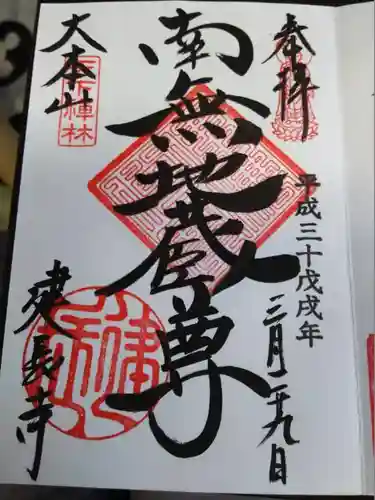 奉拝
平成三十戊戌年
三月二十九日
南無地蔵尊
大本山
建長寺